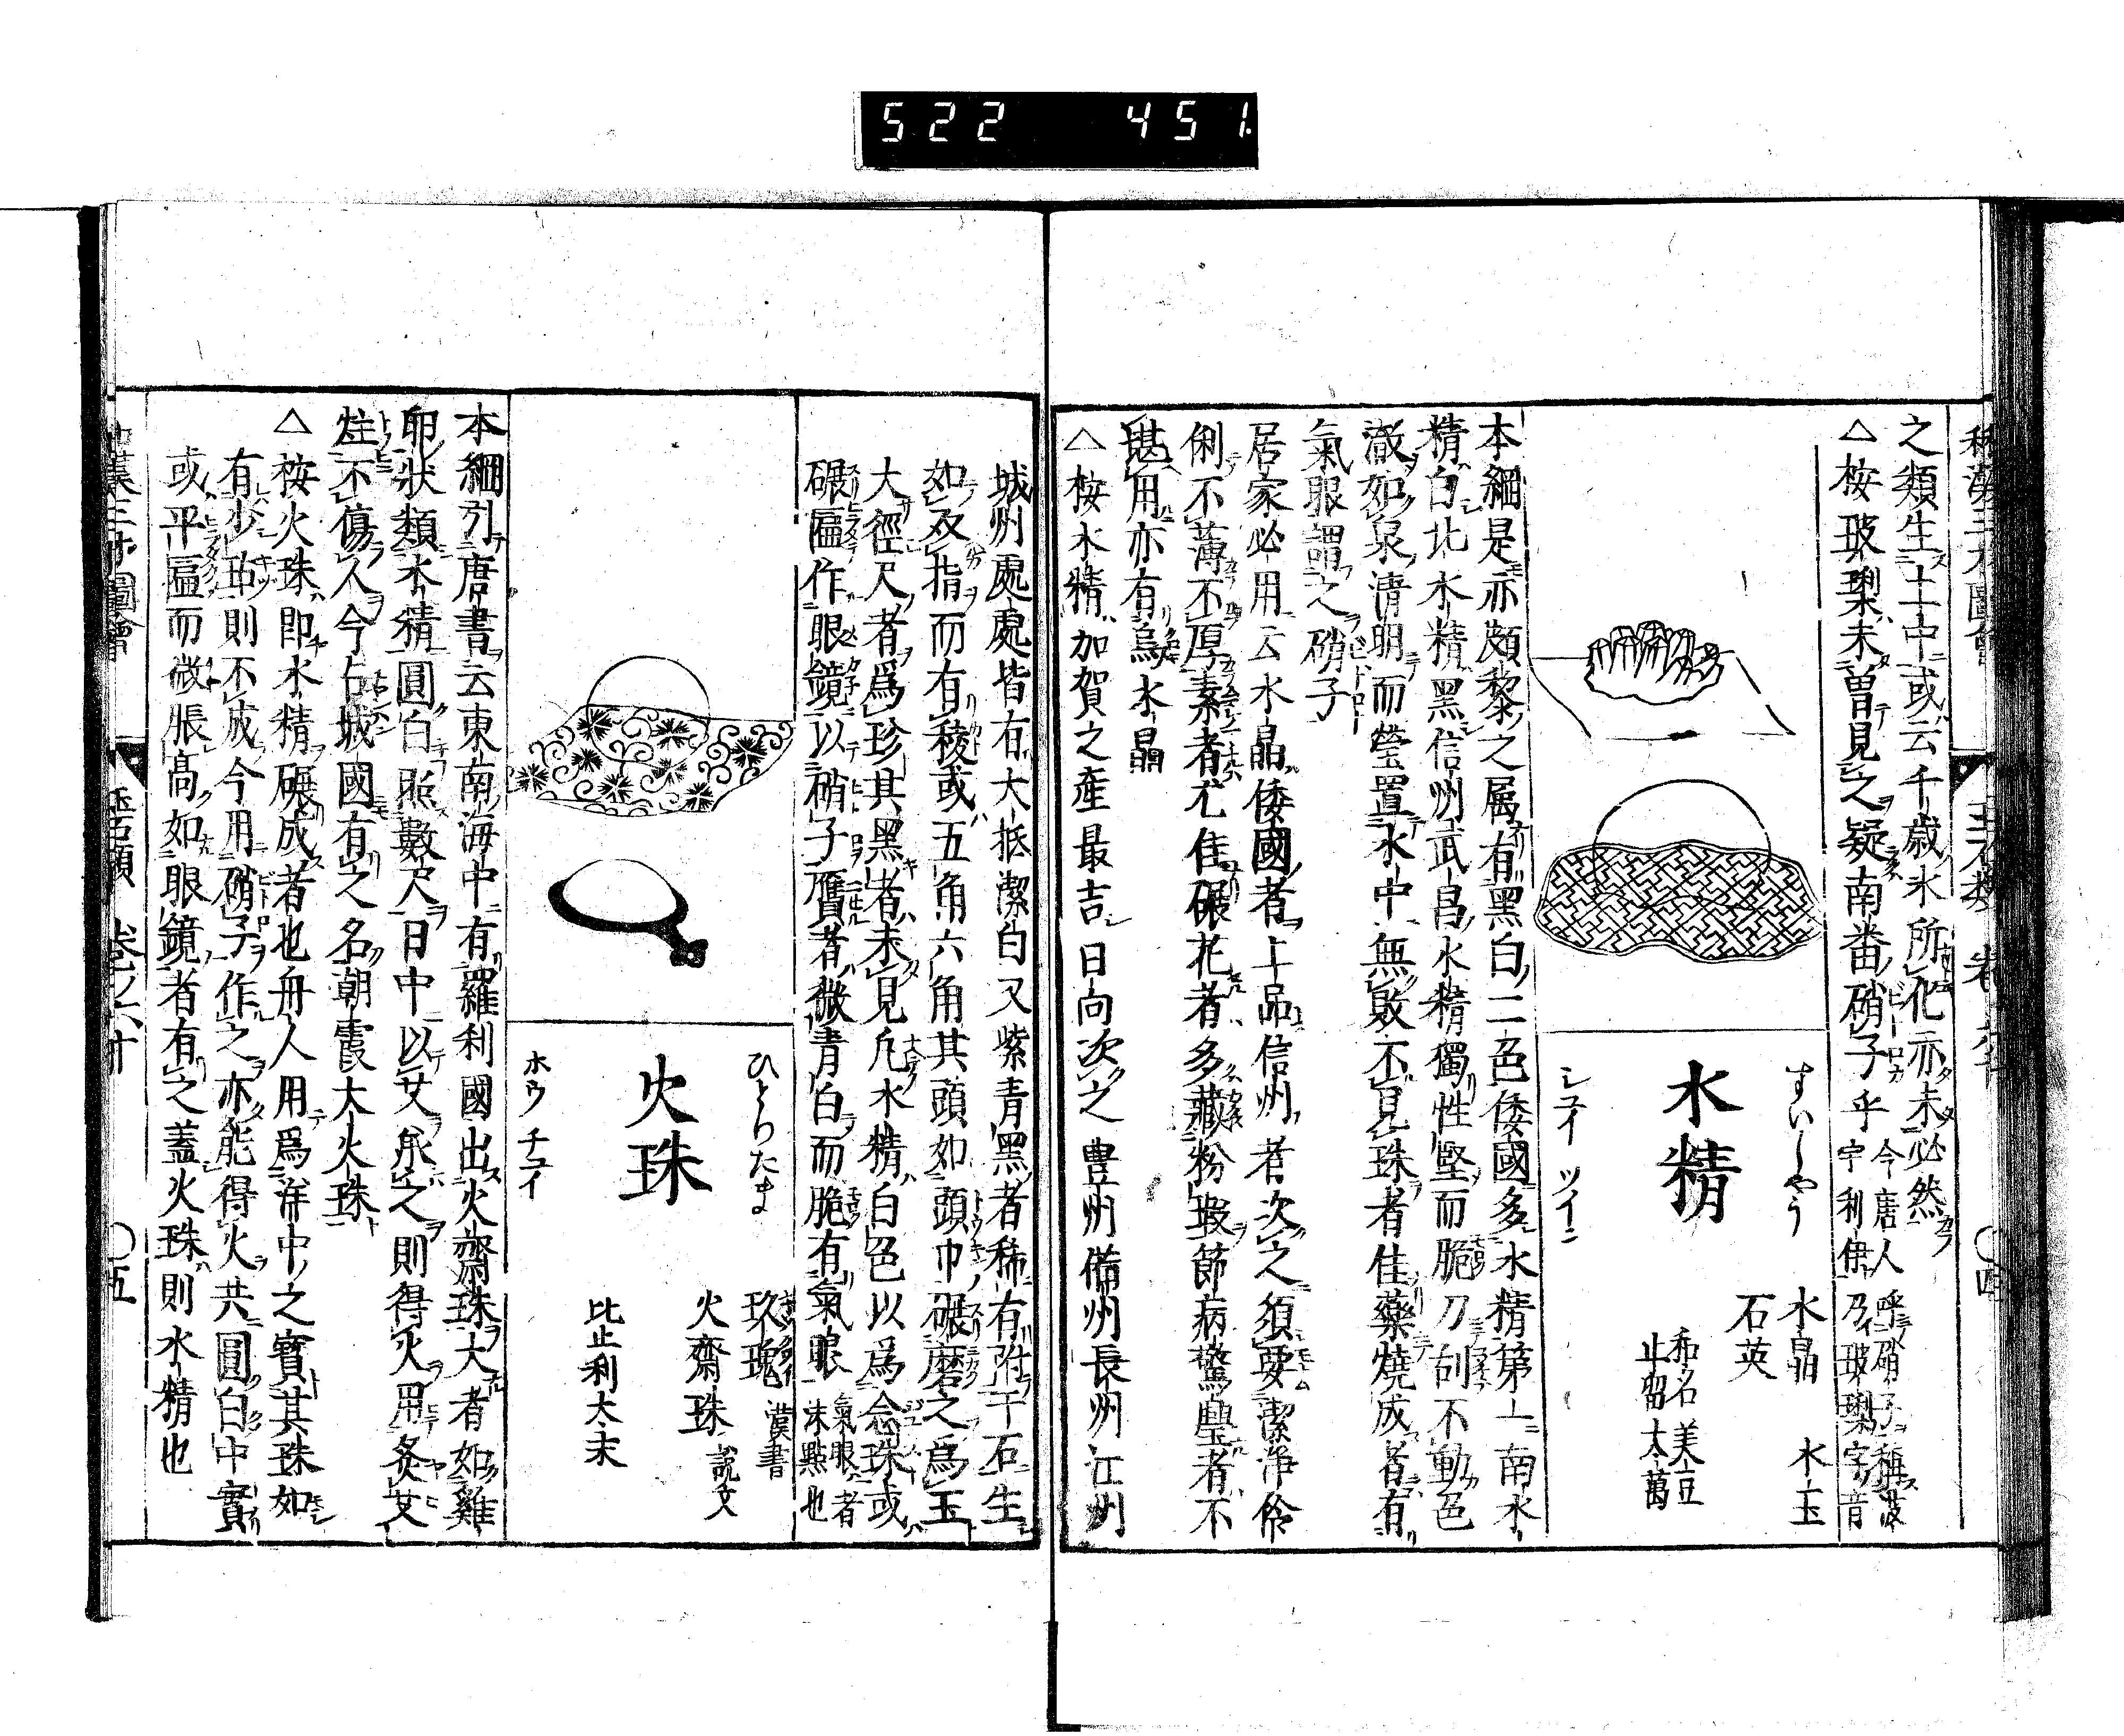 522 451.
和漢三才圖會 玉石類 卷ノ六十 〇四
之類生土中或云千歳氷所化亦未必然
△桉玻瓈未曽見之疑南蕃硝子乎 今唐人呼硝子稱波
宇利伊乃玻瓈字音
水精
すいしやう
シユイ ツイン
水晶 水玉
石英
和名 美豆
止留太萬
本綱是亦頗黎之属有黑白二色倭國多水精第一南水
精白北水精黑信州武昌水精獨性堅而脆刀刮不動色
澈如泉清明而瑩置水中無瑕不見珠者佳藥燒成者有
氣眼謂之硝子
居家必用云水晶倭國者上品信州者次之須要潔浄伶
俐不薄不厚素者尤佳碾花者多藏粉瑕節病驚璺者不
堪用亦有烏水晶
△桉水精加賀之産最吉日向次之豊州備州長州江州
城州處處皆有大抵潔白又紫青黑者稀有附于石生
如刄指而有稜或五角六角其頭如頭巾碾磨之爲玉
大徑尺者爲珍其黑者未見凡水精白色以爲念珠或
碾匾作眼鏡以硝子贋者微青白而脆有氣眼 氣眼者
沫點也
火珠
ひとりたま
ホウ チユイ
玫瑰 漢書
火齋珠 說文
比止利太末
本綱引唐書云東南海中有羅利國出火齋珠大者如雞
卵狀類水精圓白照數尺日中以艾承之則得火用灸艾
炷不傷人今占城國有之名朝霞大火珠
△桉火珠即水精碾成者也舟人用爲洋中之寳其珠如
有少凷則不成今用硝子作之亦能得火共圓白中實
或平匾而微脹高如眼鏡者有之蓋火珠則水精也
和漢三才圖會 玉石類 卷ノ六十 〇五